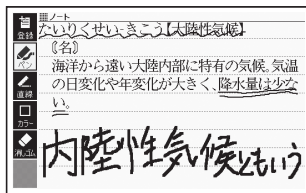 ノート
登録
ペン
直線
カラー
消しゴム
たいりくせい‐きこう【大陸性気候】
〘名〙
海洋から遠い大陸内部に特有の気候。気温
の日変化や年変化が大きく、降水量は少な
い。
内陸性気候ともいう